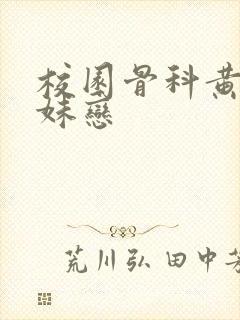 校園骨科黄
妹戀
荒川弘 田中芳